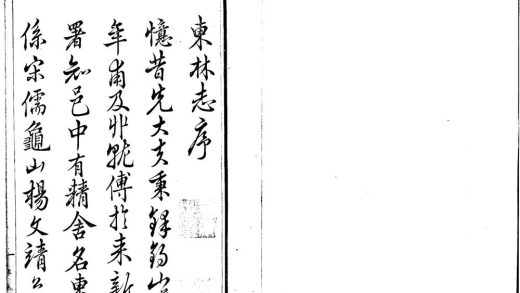 東林志序
憶昔先大夫秉鐸錫山
年甫及丱就傅於来新
署知邑中有精舍名東
係宋儒龜山楊文靖公